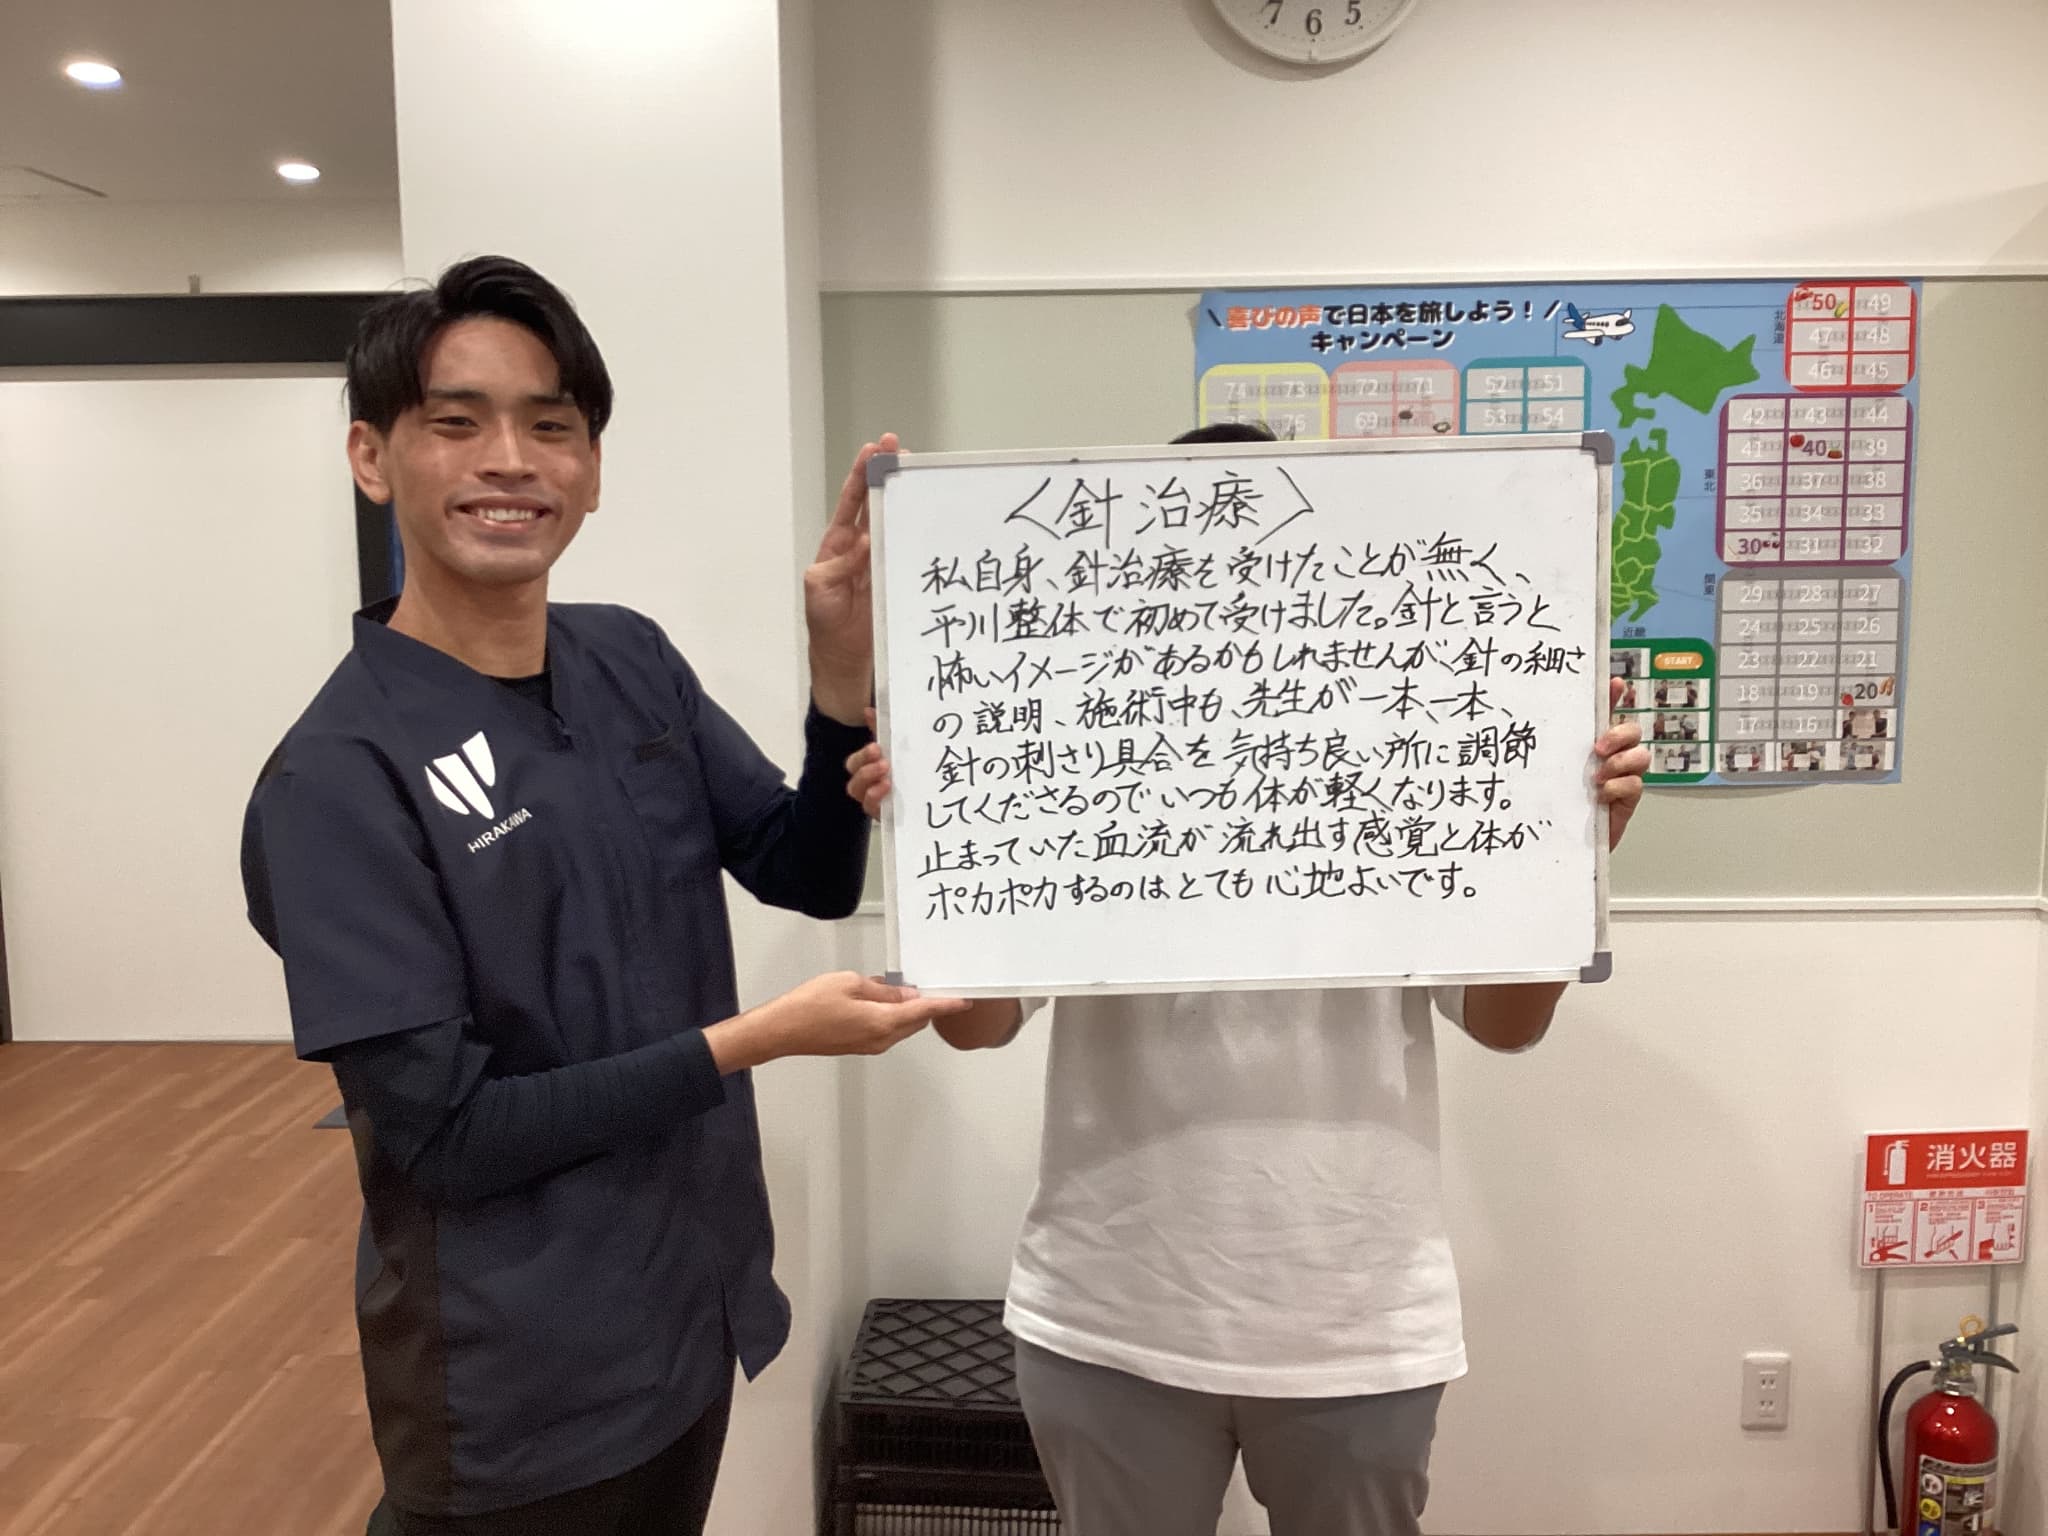 7 6 5
\喜びの声で日本を旅しよう!/
キャンペーン
74 73
76
72 71
69
52 51
53 54
北海道
50 49
47 48
46 45
東北
42 43 44
41 40 39
36 37 38
35 34 33
30 31 32
関東
29 28 27
24 25 26
23 22 21
18 19 20
17 16
近畿
START
<針治療>
私自身、針治療を受けたことが無く、
平川整体で初めて受けました。針と言うと
怖いイメージがあるかもしれませんが、針の細さ
の説明、施術中も、先生が一本、一本、
針の刺さり具合を気持ち良い所に調節
してくださるのでいつも体が軽くなります。
止まっていた血流が流れ出す感覚と体が
ポカポカするのはとても心地よいです。
HIRAKAWA
消火器
TO OPERATE
1 2 3